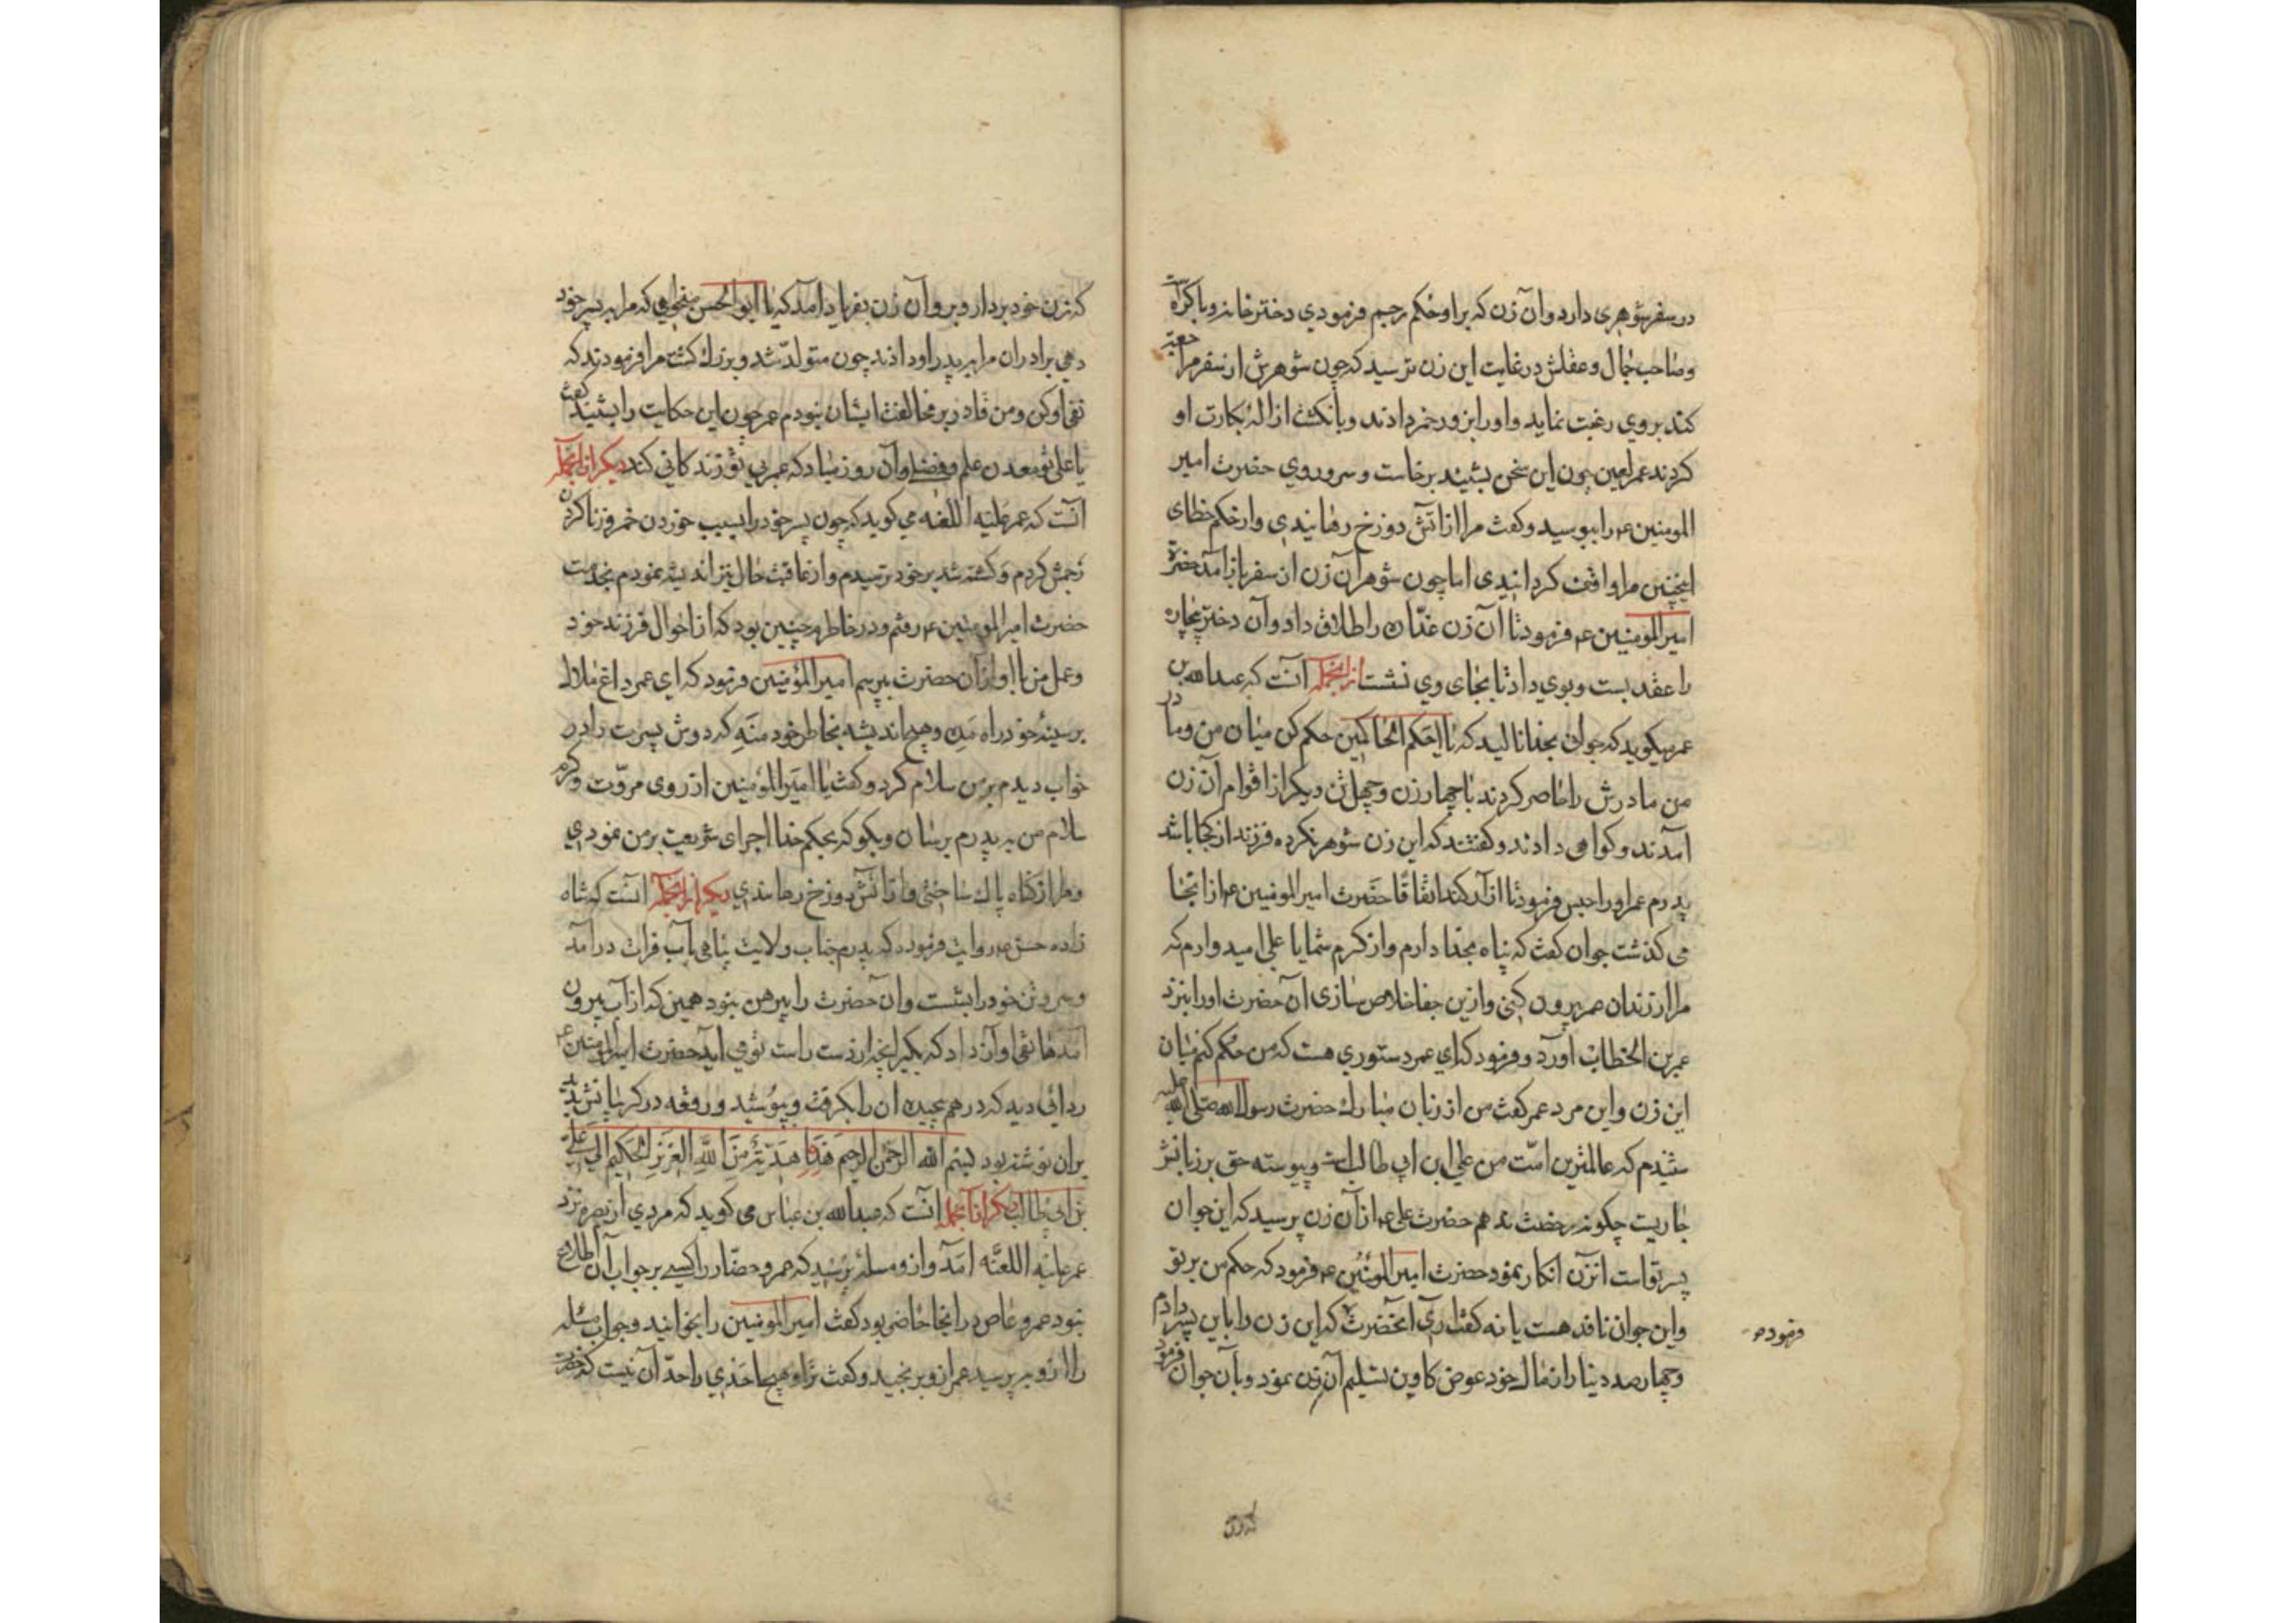 در سفر شوهری دارد و آن زن که بر او حکم رجم فرمودي دختر خانه و باکره است
و صاحب جمال و عقلش در غایت این زن ترسید که چون شوهرش از سفر مراجعت
کند بروي رغبت نماید و او را بزور خمر دادند و بانکشت ازالهٔ بکارت او
کردند عمر لعین چون این سخن بشنید برخاست و سر و روي حضرت امیر
المومنین ع را ببوسید و کفت مرا از آتش دوزخ رهانیدي و از حکم خطای
اینچنین مرا واقف کردانیدی اما چون شوهر آن زن از سفر باز آمد حضرة
امیر المومنین ع فرمود تا آن زن غدّاره را طلاق داد و آن دختر بیچاره
را عقد بست و بوي داد تا بجای وي نشست از انجمله آنست که عبدالله بن
عمر میکوید که جوانی بخدا نالید که یا احکم الحاکمین حکم کن میان من و مادر
من مادرش را حاضر کردند با چهار زن و چهل تن دیکر از اقوام آن زن
آمدند و کواهی دادند و کفتند که این زن شوهر نکرده فرزند از کجا باشد
پدرم عمر او را حبس فرمود تا ازآد کند اتفاقًا حضرت امیر المومنین ع از انجا
می کذشت جوان کفت که پناه بخدا دارم و از کرم شما یا علی امیدوارم که
مرا از زندان عمر بیرون کنی و ازین جفا خلاص سازی آن حضرت او را بنزد
عمر بن الخطاب آورد و فرمود که اي عمر دستوري هست که من حکم کنم میان
این زن و این مرد عمر کفت من از زبان مبارك حضرت رسول الله صلی الله علیه
شنیدم که عالمترین امّت من علی ابن ابی طالب است و پیوسته حق بر زبانش
جاریست چکونه رخصت ندهم حضرت علی ع از آن زن پرسید که این جوان
پسر تو است آنزن انکار نمود حضرت امیر المومنین ع فرمود که حکم من بر تو
و این جوان نافذ هست یا نه کفت آری آنحضرت که این زن را باین پسر دادم
فرموده
و چهارصد دینار از مال خود عوض کاوین تسلیم آن زن نمود و بآن جوان فرمود
که زن
که زن خود بردار و برو آن زن بفریاد آمد که یا ابو الحسن میخواهی که مرا به پسر خود
دهی برادران مرا بپدر او دادند چون متولّد شد و بزرك کشت مرا فرمودند که
نفی او کن و من قادر بر مخالفت ایشان نبودم عمر چون این حکایت را بشنید کفت
یا علی تو معدن علم و فضلی و آن روز مباد که عمر بی تو زندکانی کند دیکر از انجمله
آنست که عمر علیه اللعنه می کوید که چون پسر خود را بسبب خوردن خمر و زنا کردن
زخمش کردم و کشته شد بر خود ترسیدم و از عاقبت حال نیز اندیشه نمودم بخدمت
حضرت امیر المومنین ع رفتم و در خاطرم چنین بود که از احوال فرزند خود
و عمل من با او از آن حضرت بپرسم امیر المؤمنین فرمود که اي عمر داغ ملال
بر سینهٔ خود راه مده و هیچ اندیشه بخاطر خود منه که دوش پسرت را در
خواب دیدم بر من سلام کرد و کفت یا امیر المؤمنین از روی مروّت و کرم
سلام من به پدرم برسان و بکو که بحکم خدا اجرای شریعت بر من نمودي
و مرا از کناه پاك ساختی و از آتش دوزخ رهانیدي دیکر از انجمله آنست که شاه
زاده حسن ع روایت فرموده که پدرم جناب ولایت پناهی بآب فرات در آمد
و سر و تن خود را بشست و آن حضرت را پیرهن نبود همین که از آب بیرون
آمد هاتفی آواز داد که بکیر آنچه از دست راست تو می آید حضرت امیر المومنین ع
ردائی دید که در هم پیچیده آن را بکرفت و بپوشید و رقعه در کریبانش بد
بران نوشته بود بسم الله الرحمن الرحیم هَذَا هدیة مِنَ اللهِ العَزیزِ الحَکیمِ الی علی
بن ابی طالب دیکر از آنجمله آنست که عبدالله بن عباس می کوید که مردي از بصره نزد
عمر علیه اللعنه آمد و از و مسلهٔ پرسید که عمر و حضّار را کسی بر جواب آن اطلاع
نبود عمرو عاص در آنجا حاضر بود کفت امیر المومنین را بخوانید و جواب مسئله
را از و بپرسید عمر از و برنجید و کفت ترا و هیچ احدي را حدّ آن نیست که حضرت